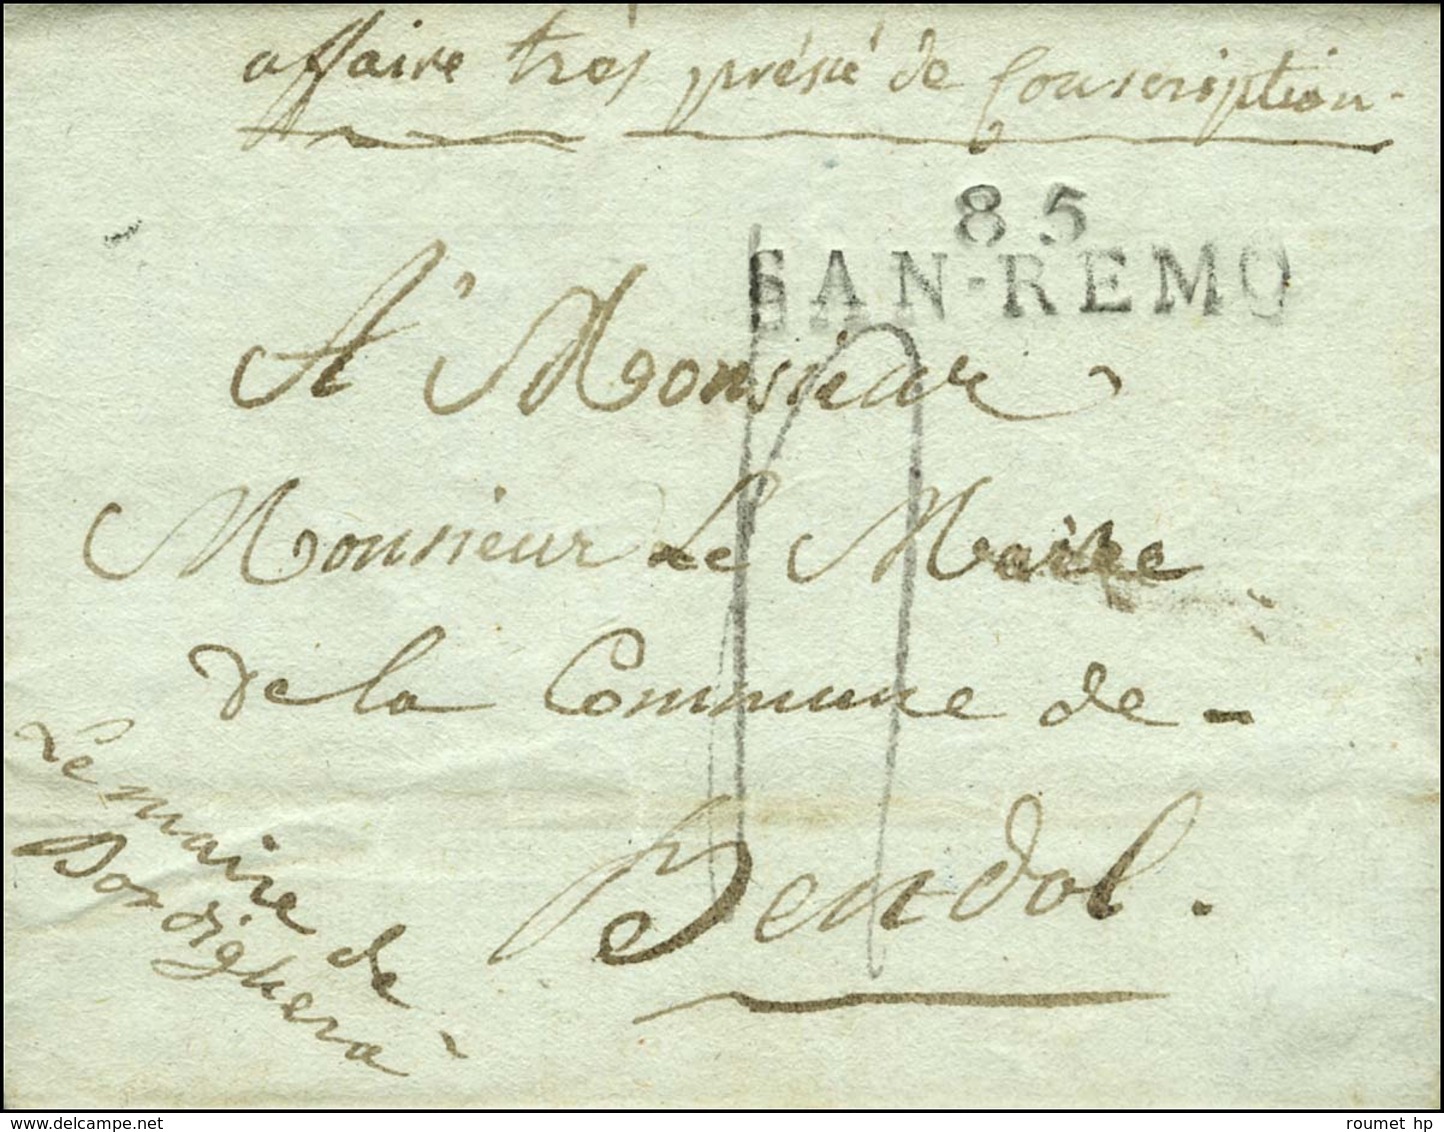 affaire très présée de Conscription.
85
SAN-REMO
A' Monsieur
Monsieur Le Maire
de la Commune de -
Bendol.
Le maire de
Bordighera
roumet hp